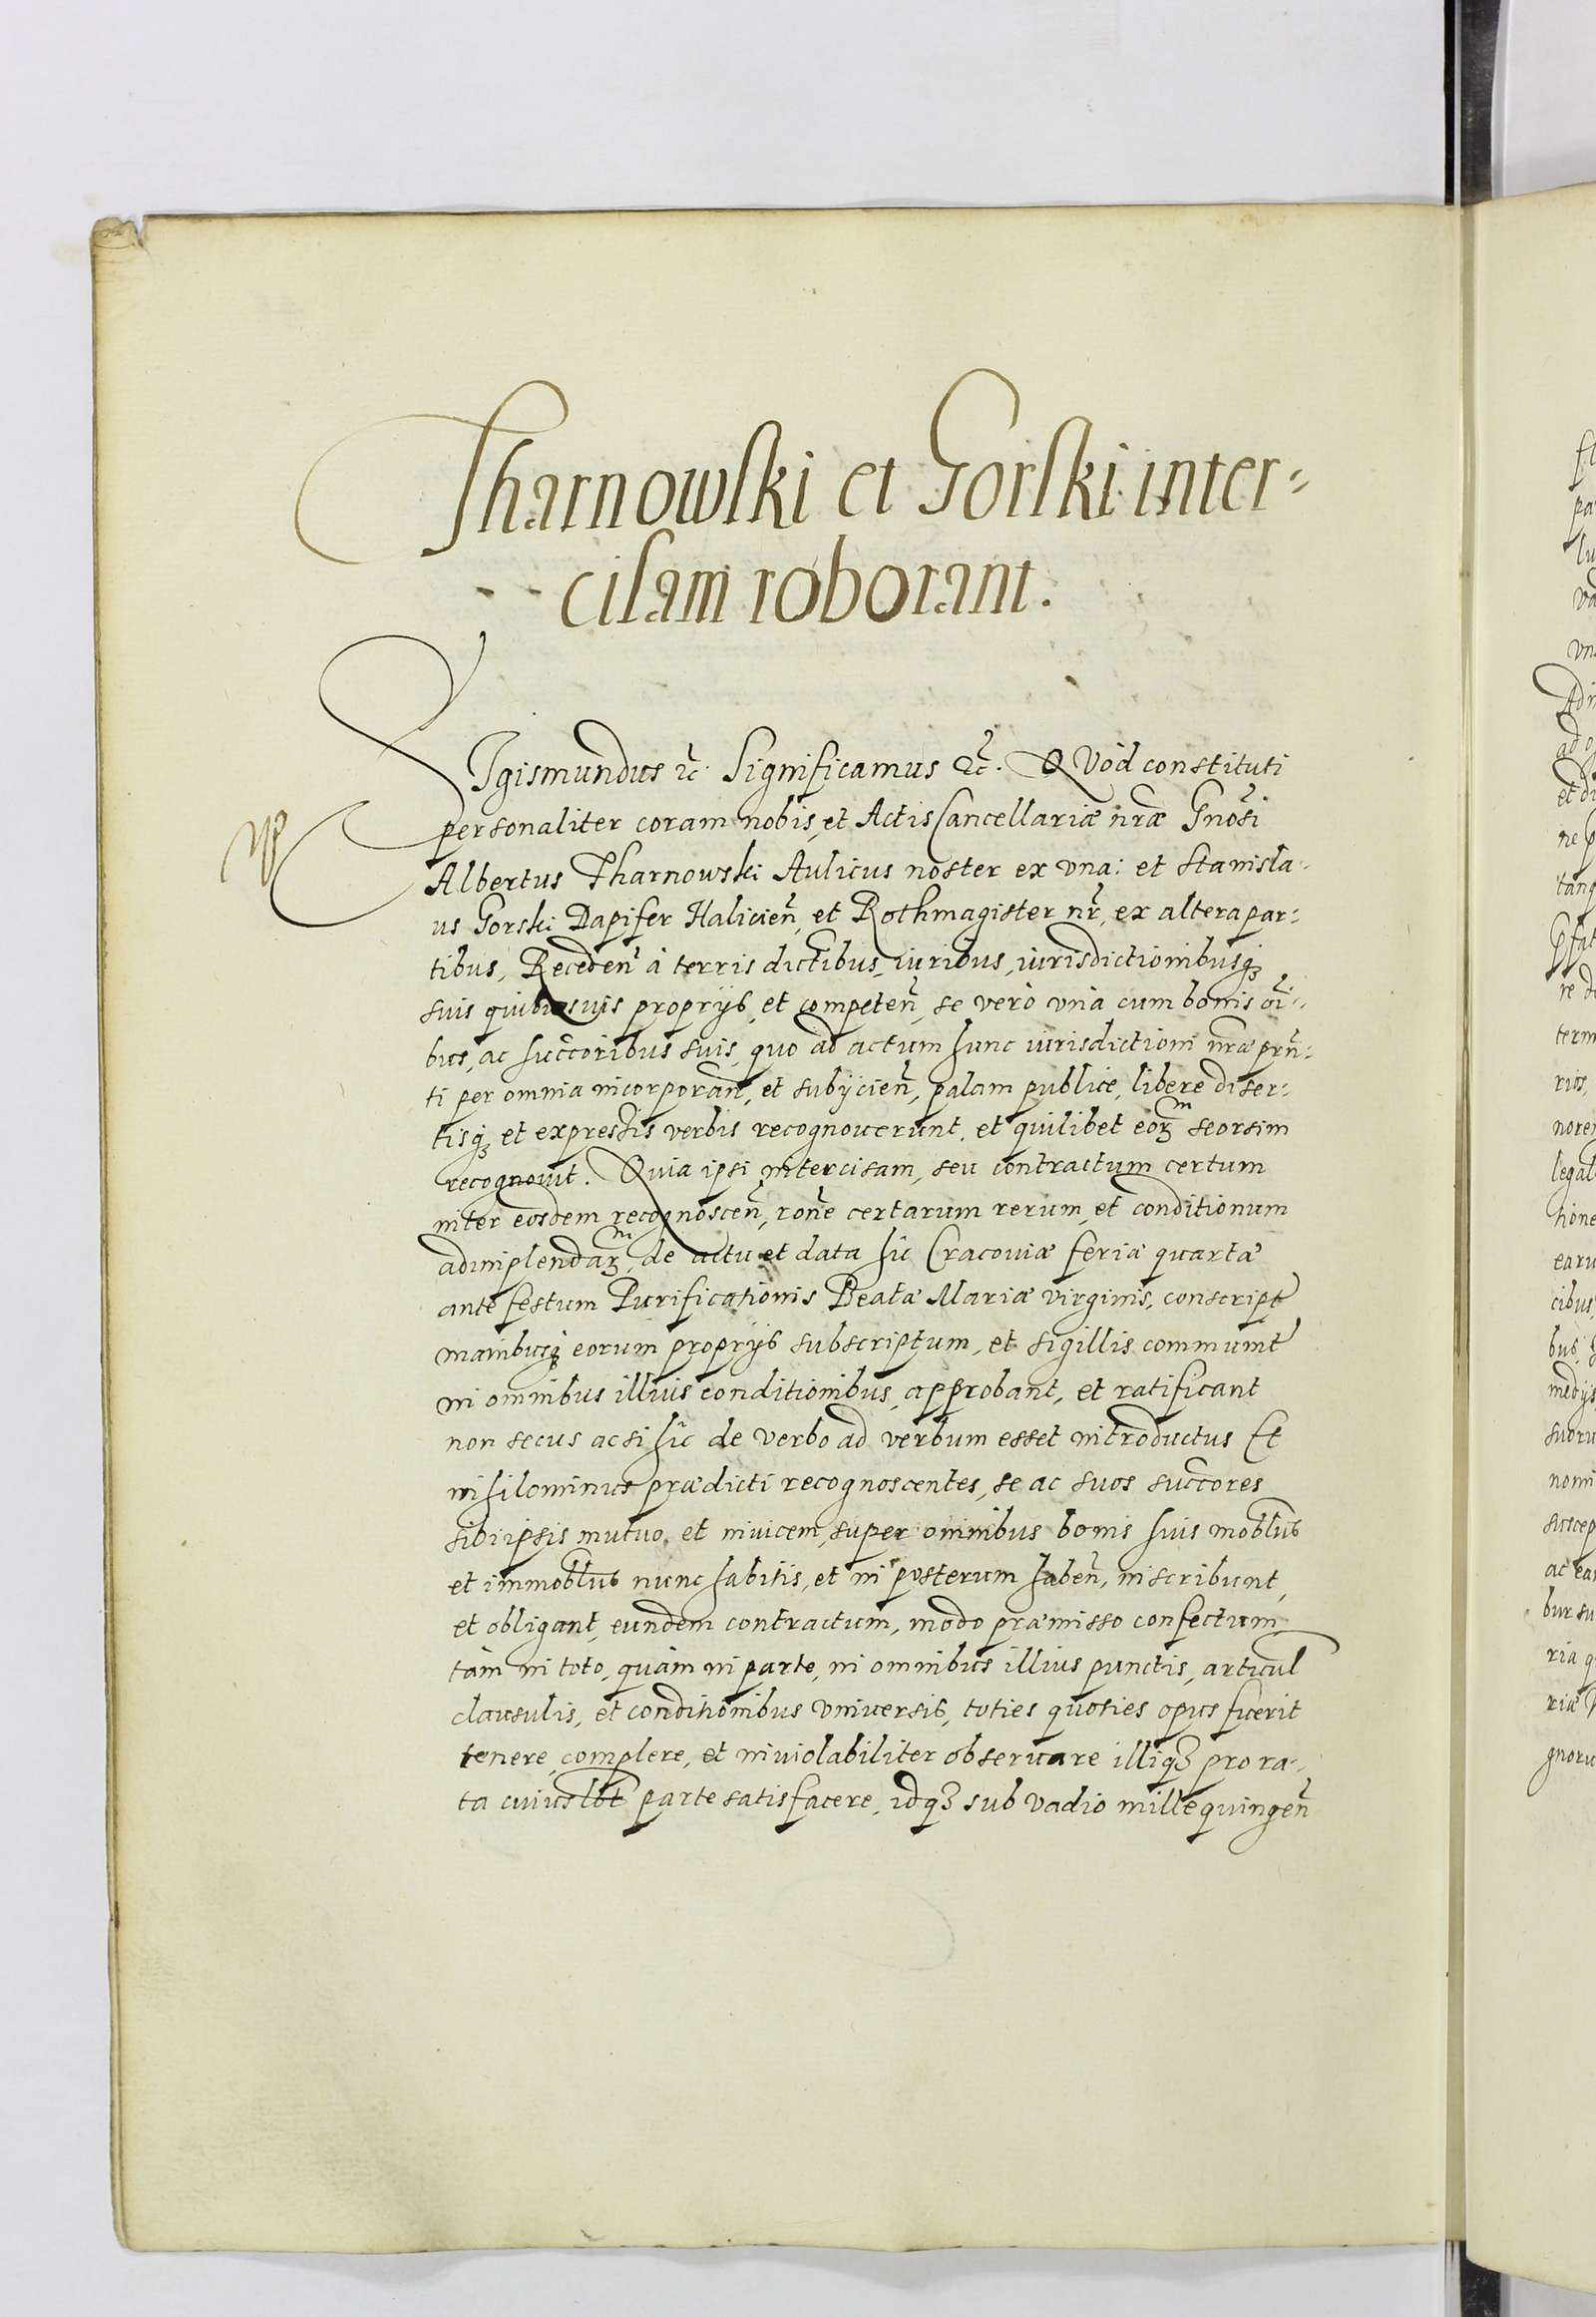 Tharnowski et Gorski inter-
cisam roborant.
SIgismundus etc. Significamus etc. QVòd constituti
personaliter coram nobis, et Actis Cancellariæ nr̃æ Gnõsi
Albertus Tharnowski Aulicus noster ex vna: et Stanisla-
us Gorski Dapifer Halicień, et Rothmagister nr̃, ex altera par-
tibus, Recedeń à terris dictibus, iuribus, iurisdictionibusq́3
suis quibusuis proprijs, et competeń, se verò vnà cum bonis oĩ-
bus, ac succoribus suis, quo ad actum hunc iurisdictioni nr̃æ prñ-
ti per omnia incorporań, et subijcień, palam publice, libere diser-
tisq́3 et expressis verbis recognouerunt, et quilibet eoꝝm seorsim
recognouit. Quia ipsi intercisam, seu contractum certum
inter eosdem recognosceń, rone certarum rerum, et conditionum
adimplendaꝝm, de actu et data hic Cracouiæ feria quarta
ante festum Purificationis Beatæ Mariæ virginis, conscript
manibusq́3 eorum proprijs subscriptum, et sigillis communit
in omnibus illius conditionibus, approbant, et ratificant
non secus ac si hîc de verbo ad verbum esset introductus Et
nihilominus prædicti recognoscentes, se ac suos succores
sibi ipsis mutuo, et inuicem, super omnibus bonis suis moblibus
et immoblibus nunc habitis, et in posterum habeń, inscribunt,
et obligant, eundem contractum, modo præmisso confectum,
tàm in toto, quàm in parte, in omnibus illius punctis, articul
clausulis, et conditionibus vniuersis, toties quoties opus fuerit
tenere, complere, et inuiolabiliter obseruare illiq3 pro ra-
ta cuiuslbt parte satisfacere, idq3 sub vadio mille quingeń